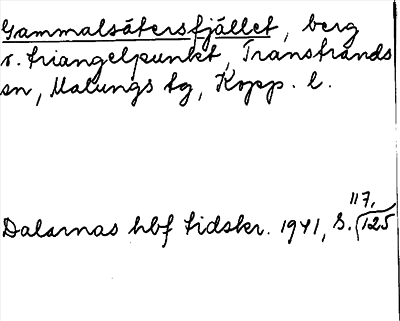 Gammalsätersfjället, berg
o. triangelpunkt, Transtrands
sn, Malungs tg, Kopp. l.
Dalarnas hbf tidskr. 1941, s. 117, 125